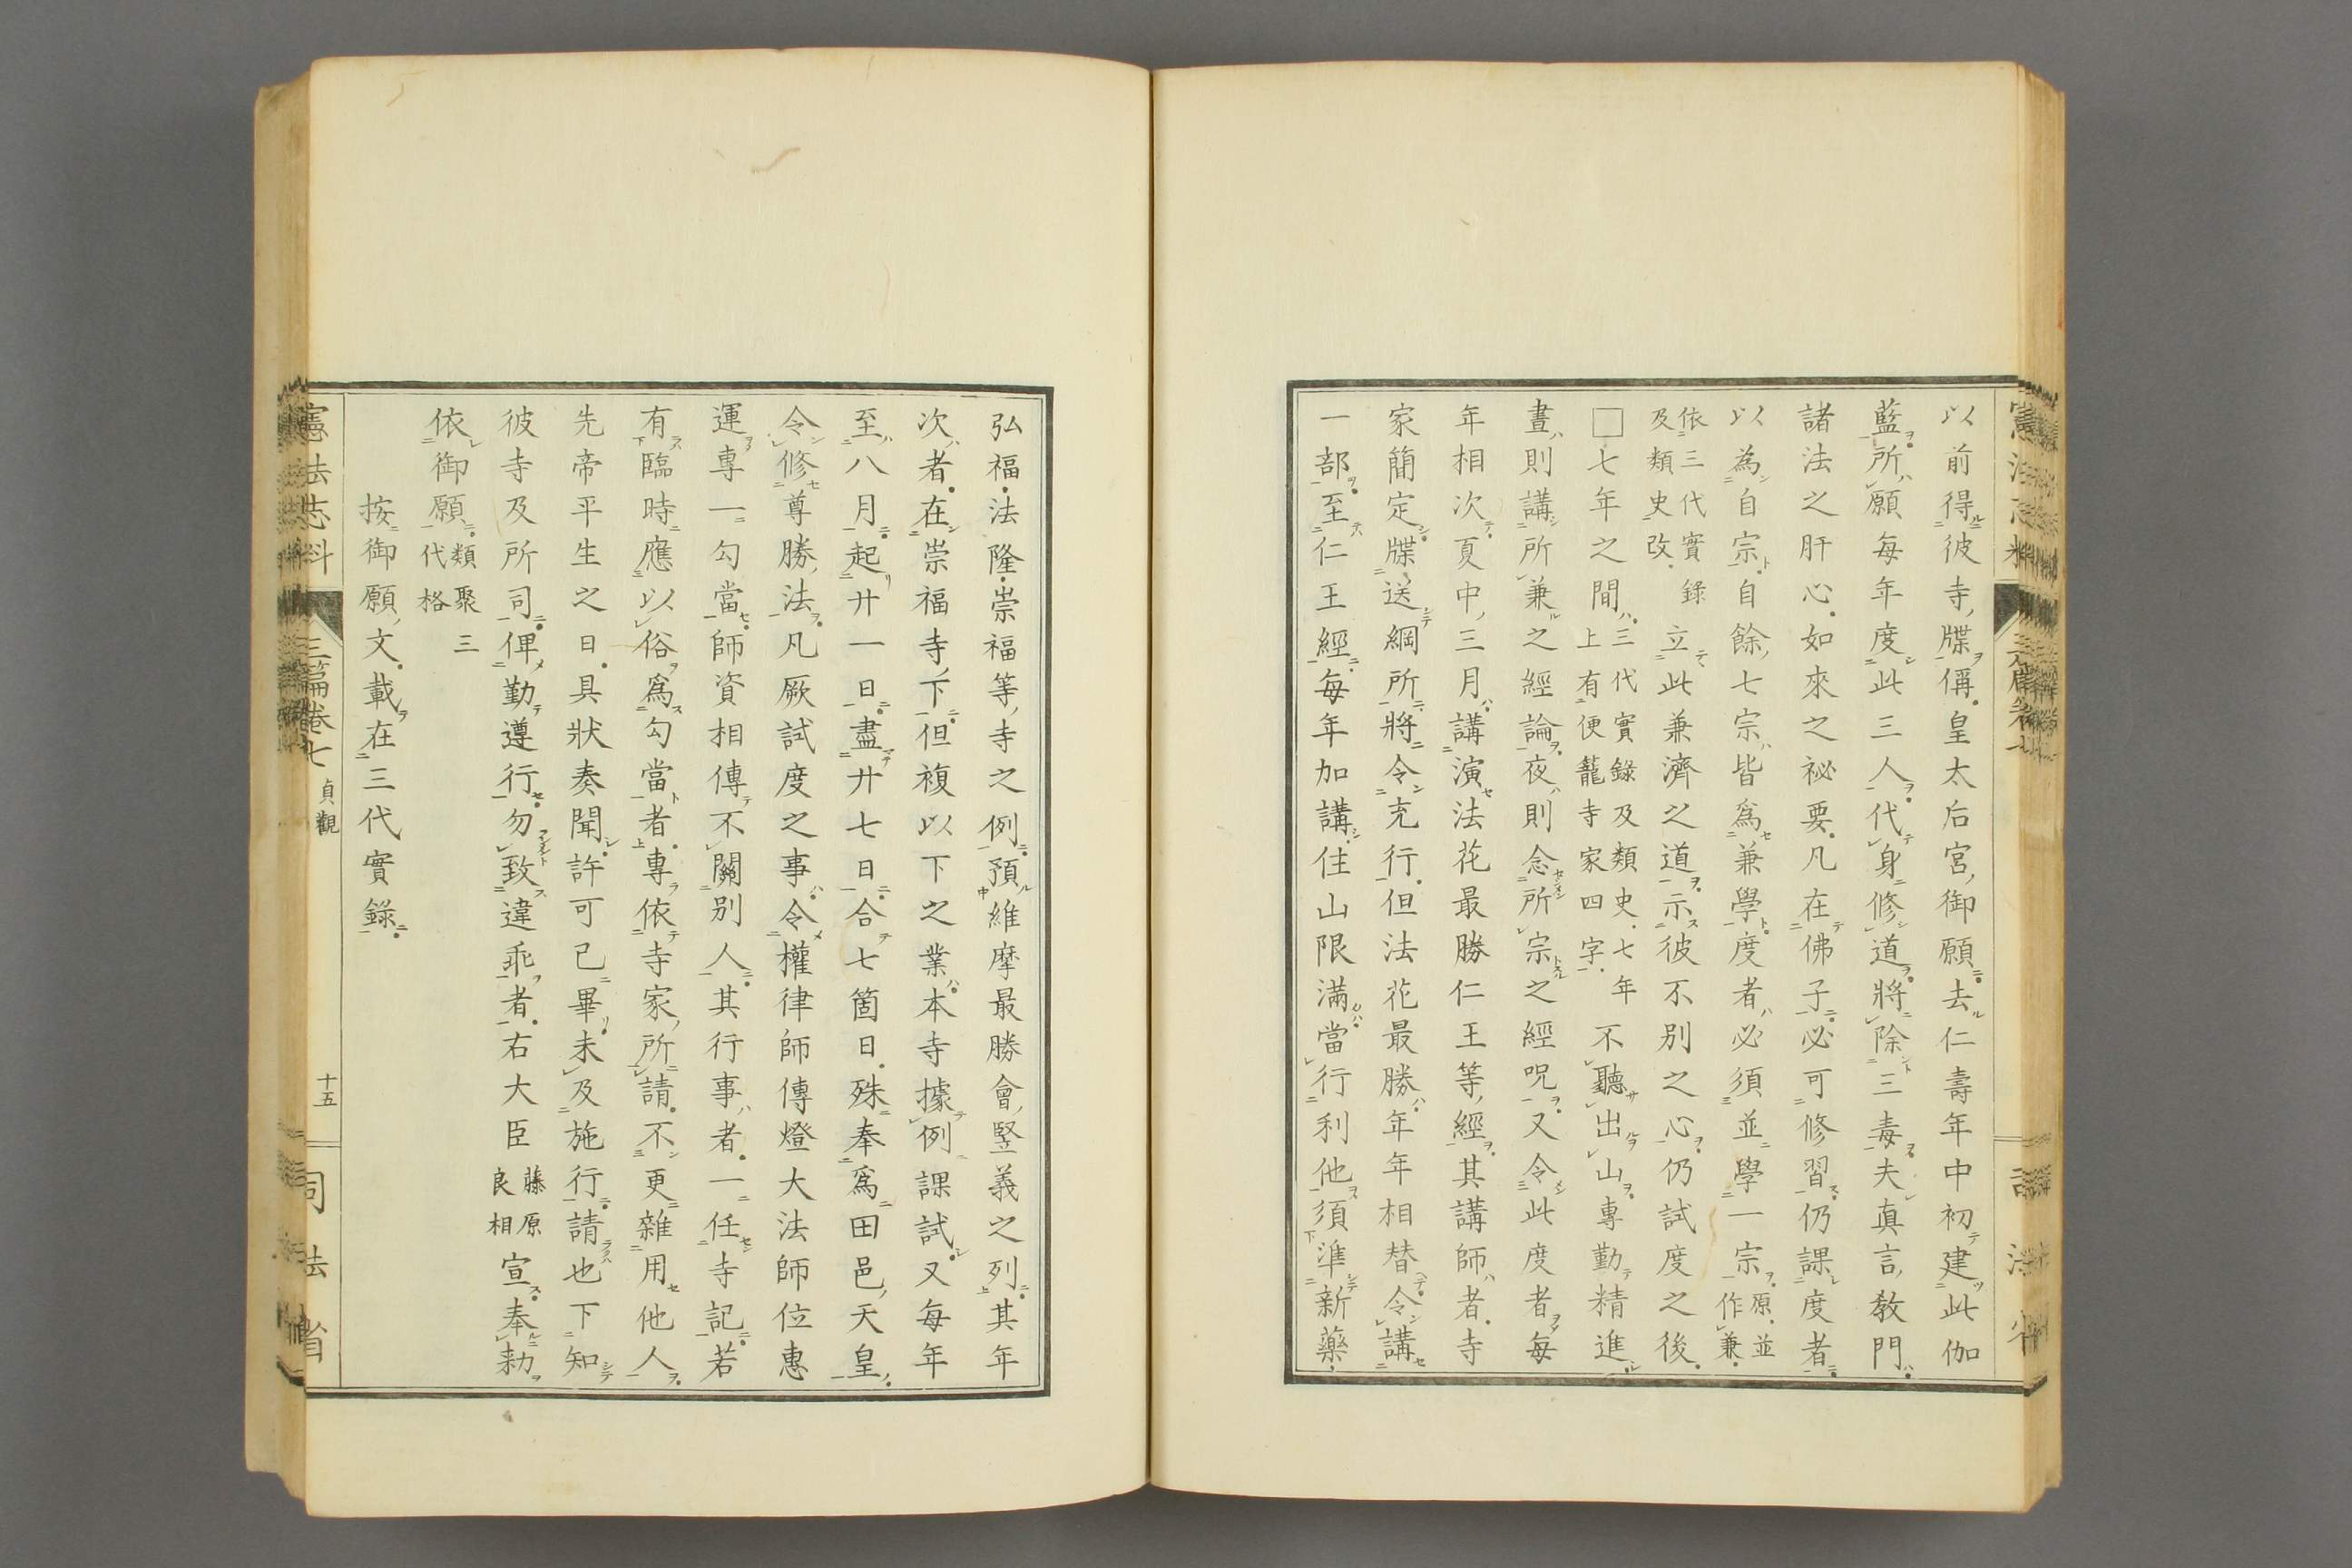 以前得彼寺牒偁皇太后宮御願去仁壽年中初建此伽
藍所願每年度此三人代身修道將除三毒夫眞言教門
諸法之肝心如來之祕要凡在佛子必可修習仍課度者
以為自宗自餘七宗皆爲兼學度者必須並學一宗原並作兼
依三代實錄及類史改立此兼濟之道示彼不別之心仍試度之後
□七年之間三代實錄及類史七年上有便籠寺家四字不聽出山專勤精進
晝則講所兼之經論夜則念所宗之經呪又令此度者每
年相次夏中三月講演法花最勝仁王等經其講師者寺
家簡定牒送綱所將令充行但法花最勝年年相替令講
一部至仁王經每年加講住山限滿當行利他須準新藥
弘福法隆崇福等寺之例預維摩最勝會竪義之列其年
次者在崇福寺下但複以下之業本寺據例課試又每年
至八月起廿一日盡廿七日合七箇日殊奉爲田邑天皇
令修尊勝法凡厥試度之事令權律師傳燈大法師位惠
運專一勾當師資相傳不關別人其行事者一任寺記若
有臨時應以俗爲勾當者專依寺家所請不更雜用他人
先帝平生之日具狀奏聞許可已畢未及施行請也下知
彼寺及所司俾勤遵行勿致違乖者右大臣藤原良相宣奉勅
依御願類聚三代格
按御願文載在三代實錄
憲法志料 三篇卷七 貞觀 十五 司法省